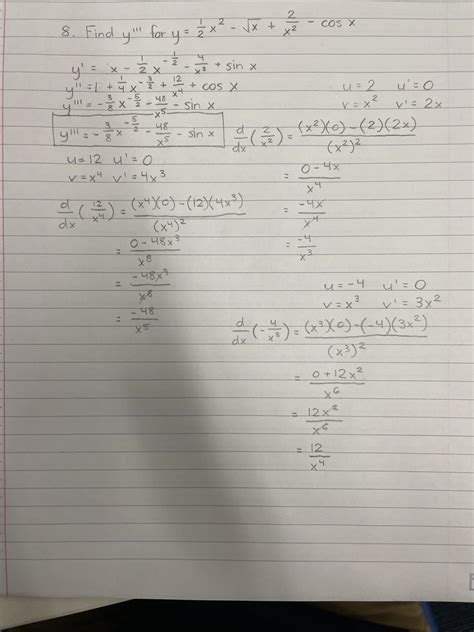 8. Find y''' for y = 1/2 x² - √x + 2/x² - cos x
y' = x - 1/2 x^(-1/2) - 4/x³ + sin x
y'' = 1 + 1/4 x^(-3/2) + 12/x⁴ + cos x
y''' = -3/8 x^(-5/2) - 48/x⁵ - sin x
y''' = -3/8 x^(-5/2) - 48/x⁵ - sin x
u = 12 u' = 0
v = x⁴ v' = 4x³
d/dx (12/x⁴) = (x⁴)(0) - (12)(4x³)/(x⁴)²
= 0 - 48x³/x⁸
= -48x³/x⁸
= -48/x⁵
u = 2 u' = 0
v = x² v' = 2x
d/dx (2/x²) = (x²)(0) - (2)(2x)/(x²)²
= 0 - 4x/x⁴
= -4x/x⁴
= -4/x³
u = -4 u' = 0
v = x³ v' = 3x²
d/dx (-4/x³) = (x³)(0) - (-4)(3x²)/(x³)²
= 0 + 12x²/x⁶
= 12x²/x⁶
= 12/x⁴